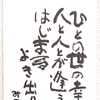 ひとの世の幸
人と人とが逢う
はじまる
よき出
み